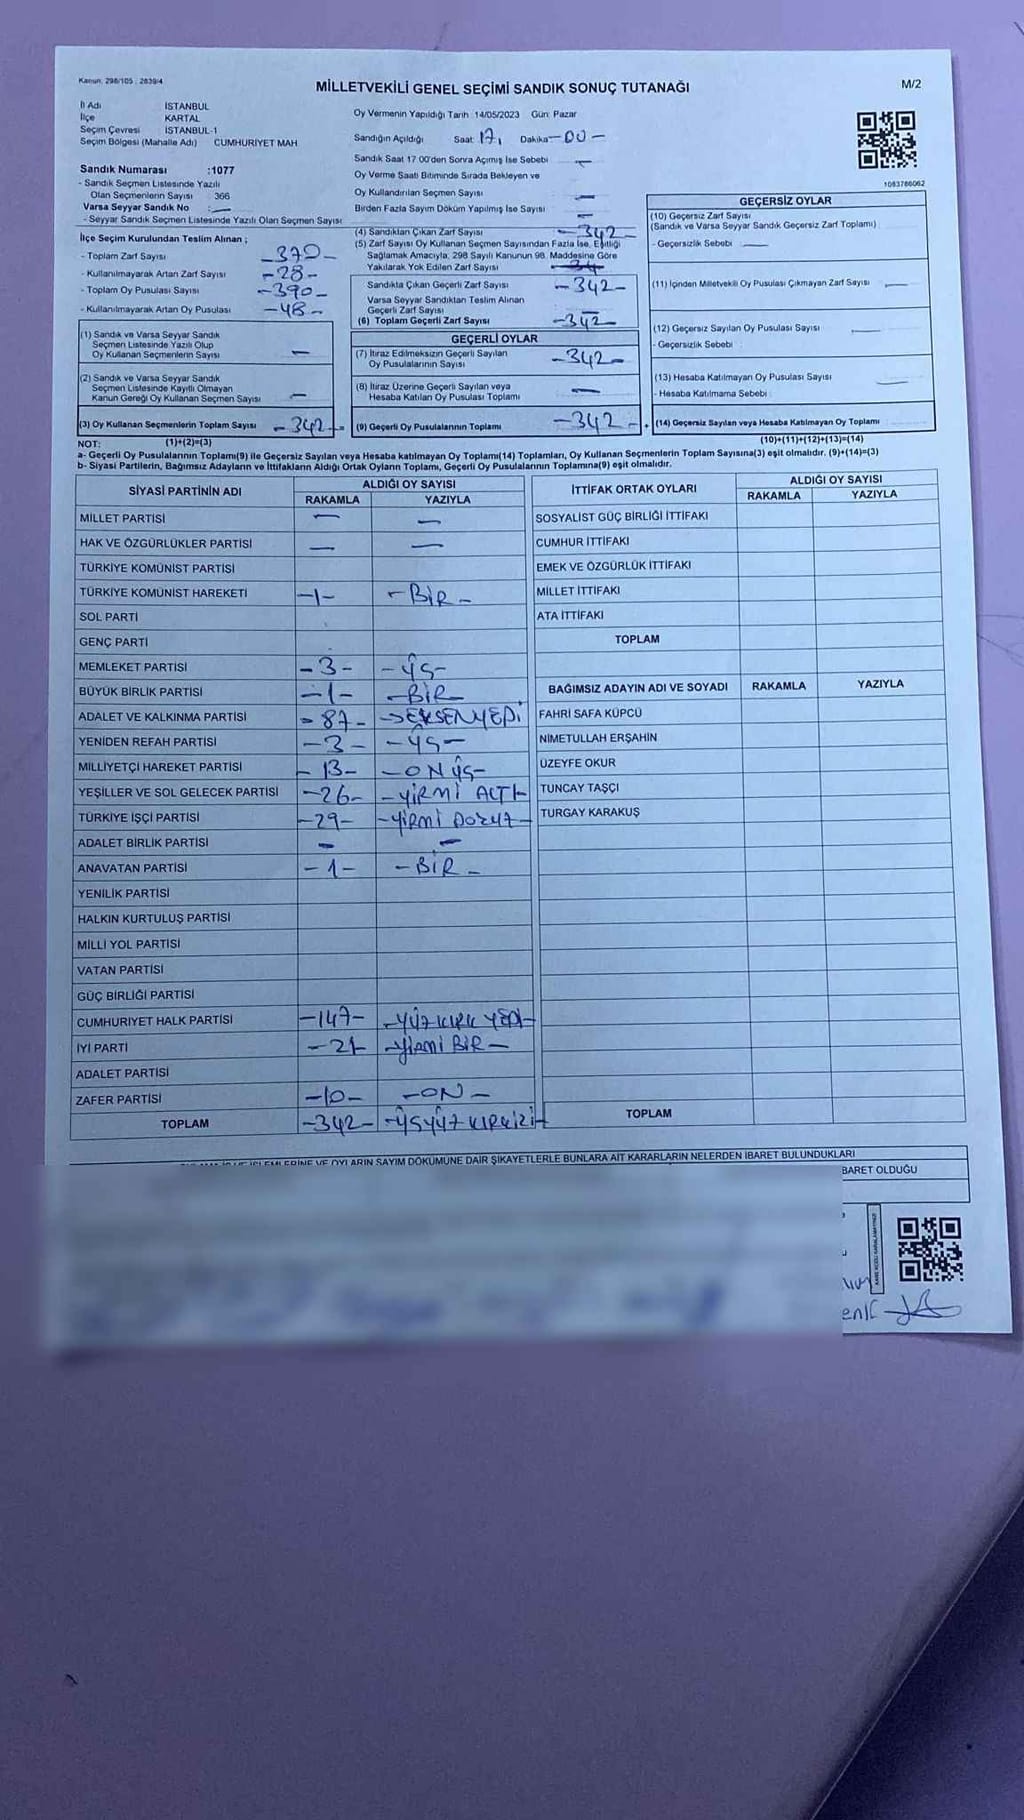 Kanun: 298/105 - 2839/4
MİLLETVEKİLİ GENEL SEÇİMİ SANDIK SONUÇ TUTANAĞI
M/2
İl Adı İSTANBUL
İlçe KARTAL
Seçim Çevresi İSTANBUL-1
Seçim Bölgesi (Mahalle Adı) CUMHURİYET MAH
Sandık Numarası :1077
- Sandık Seçmen Listesinde Yazılı
Olan Seçmenlerin Sayısı 366
Varsa Seyyar Sandık No :
- Seyyar Sandık Seçmen Listesinde Yazılı Olan Seçmen Sayısı
Oy Vermenin Yapıldığı Tarih 14/05/2023 Gün: Pazar
Sandığın Açıldığı Saat: 17, Dakika -00-
Sandık Saat 17 00'den Sonra Açımış İse Sebebi -
Oy Verme Saati Bitiminde Sırada Bekleyen ve
Oy Kullandırılan Seçmen Sayısı -
Birden Fazla Sayım Döküm Yapılmış İse Sayısı -
1083766062
İlçe Seçim Kurulundan Teslim Alınan ;
- Toplam Zarf Sayısı -370-
- Kullanılmayarak Artan Zarf Sayısı -28-
- Toplam Oy Pusulası Sayısı -390-
- Kullanılmayarak Artan Oy Pusulası -48-
(1) Sandık ve Varsa Seyyar Sandık
Seçmen Listesinde Yazılı Olup
Oy Kullanan Seçmenlerin Sayısı -
(2) Sandık ve Varsa Seyyar Sandık
Seçmen Listesinde Kayıtlı Olmayan
Kanun Gereği Oy Kullanan Seçmen Sayısı -
(3) Oy Kullanan Seçmenlerin Toplam Sayısı -342-
(4) Sandıktan Çıkan Zarf Sayısı -342-
(5) Zarf Sayısı Oy Kullanan Seçmen Sayısından Fazla İse, Eşitliği
Sağlamak Amacıyla, 298 Sayılı Kanunun 98. Maddesine Göre
Yakılarak Yok Edilen Zarf Sayısı
Sandıkta Çıkan Geçerli Zarf Sayısı -342-
Varsa Seyyar Sandıktan Teslim Alınan
Geçerli Zarf Sayısı -
(6) Toplam Geçerli Zarf Sayısı -342-
GEÇERLİ OYLAR
(7) İtiraz Edilmeksizin Geçerli Sayılan
Oy Pusulalarının Sayısı -342-
(8) İtiraz Üzerine Geçerli Sayılan veya
Hesaba Katılan Oy Pusulası Toplamı -
(9) Geçerli Oy Pusulalarının Toplamı -342-
GEÇERSİZ OYLAR
(10) Geçersiz Zarf Sayısı
(Sandık ve Varsa Seyyar Sandık Geçersiz Zarf Toplamı)
- Geçersizlik Sebebi -
(11) İçinden Milletvekili Oy Pusulası Çıkmayan Zarf Sayısı -
(12) Geçersiz Sayılan Oy Pusulası Sayısı -
- Geçersizlik Sebebi
(13) Hesaba Katılmayan Oy Pusulası Sayısı -
- Hesaba Katılmama Sebebi
(14) Geçersiz Sayılan veya Hesaba Katılmayan Oy Toplamı
NOT: (1)+(2)=(3) (10)+(11)+(12)+(13)=(14)
a- Geçerli Oy Pusulasının Toplamı(9) ile Geçersiz Sayılan veya Hesaba katılmayan Oy Toplamı(14) Toplamları, Oy Kullanan Seçmenlerin Toplam Sayısına(3) eşit olmalıdır. (9)+(14)=(3)
b- Siyasi Partilerin, Bağımsız Adayların ve İttifakların Aldığı Ortak Oyların Toplamı, Geçerli Oy Pusulalarının Toplamına(9) eşit olmalıdır.
SİYASİ PARTİNİN ADI ALDIĞI OY SAYISI
RAKAMLA YAZIYLA
MİLLET PARTİSİ - -
HAK VE ÖZGÜRLÜKLER PARTİSİ - -
TÜRKİYE KOMÜNİST PARTİSİ
TÜRKİYE KOMÜNİST HAREKETİ -1- -BİR-
SOL PARTİ
GENÇ PARTİ
MEMLEKET PARTİSİ -3- -ÜÇ-
BÜYÜK BİRLİK PARTİSİ -1- -BİR-
ADALET VE KALKINMA PARTİSİ -87- -SEKSENYEDİ
YENİDEN REFAH PARTİSİ -3- -ÜÇ-
MİLLİYETÇİ HAREKET PARTİSİ -13- -ON ÜÇ-
YEŞİLLER VE SOL GELECEK PARTİSİ -26- -YİRMİ ALTI-
TÜRKİYE İŞÇİ PARTİSİ -29- -YİRMİ DOKUZ-
ADALET BİRLİK PARTİSİ - -
ANAVATAN PARTİSİ -1- -BİR-
YENİLİK PARTİSİ
HALKIN KURTULUŞ PARTİSİ
MİLLİ YOL PARTİSİ
VATAN PARTİSİ
GÜÇ BİRLİĞİ PARTİSİ
CUMHURİYET HALK PARTİSİ -147- -YÜZ KIRK YEDİ-
İYİ PARTİ -21- -YİRMİ BİR-
ADALET PARTİSİ
ZAFER PARTİSİ -10- -ON-
TOPLAM -342- -ÜÇYÜZ KIRKİKİ-
İTTİFAK ORTAK OYLARI ALDIĞI OY SAYISI
RAKAMLA YAZIYLA
SOSYALİST GÜÇ BİRLİĞİ İTTİFAKI
CUMHUR İTTİFAKI
EMEK VE ÖZGÜRLÜK İTTİFAKI
MİLLET İTTİFAKI
ATA İTTİFAKI
TOPLAM
BAĞIMSIZ ADAYIN ADI VE SOYADI RAKAMLA YAZIYLA
FAHRİ SAFA KÜPCÜ
NİMETULLAH ERŞAHİN
ÜZEYFE OKUR
TUNCAY TAŞÇI
TURGAY KARAKUŞ
TOPLAM
İŞLEMLERİNE VE OYLARIN SAYIM DÖKÜMÜNE DAİR ŞİKAYETLERLE BUNLARA AİT KARARLARIN NELERDEN İBARET BULUNDUKLARI
BARET OLDUĞU